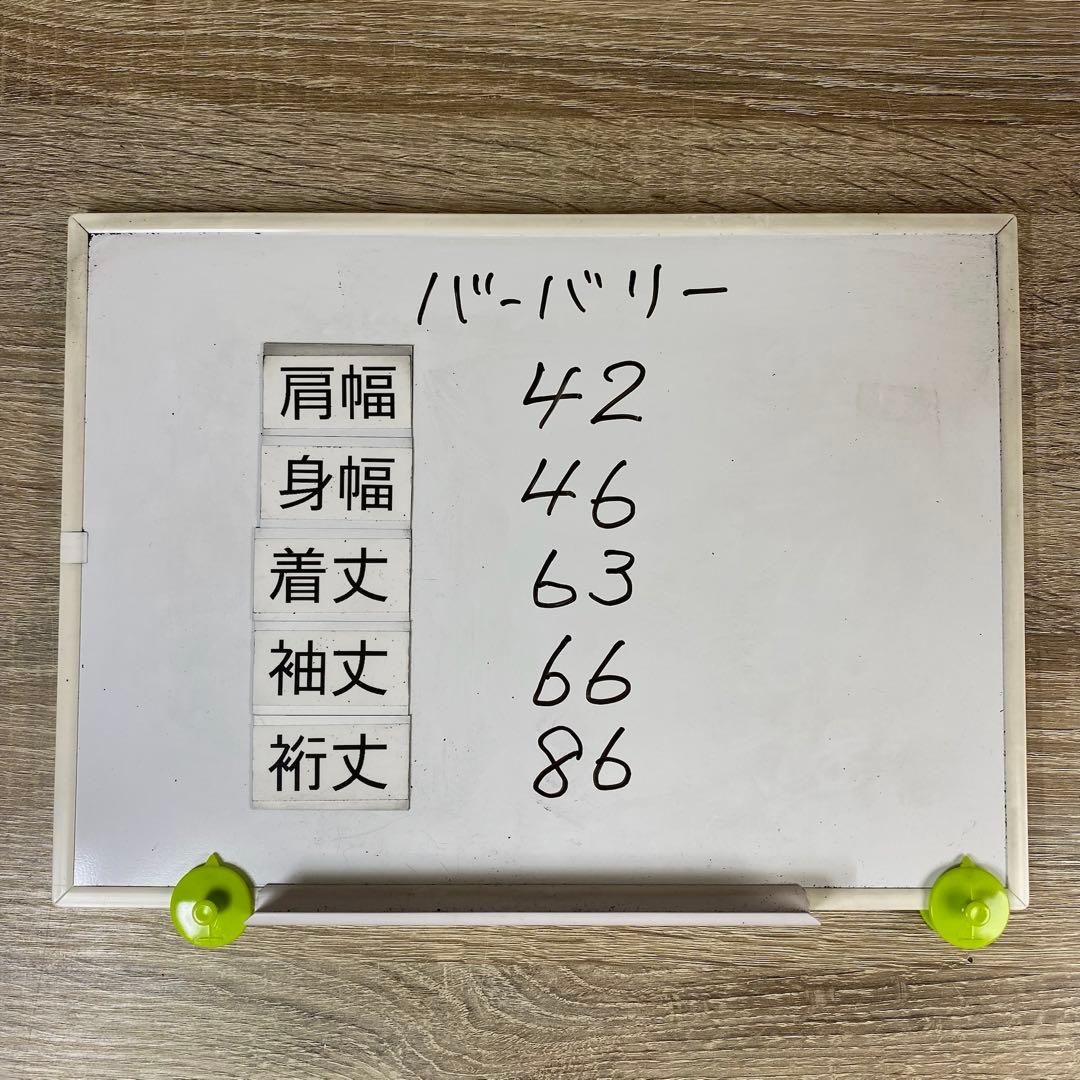 バーバリー
肩幅 42
身幅 46
着丈 63
袖丈 66
裄丈 86